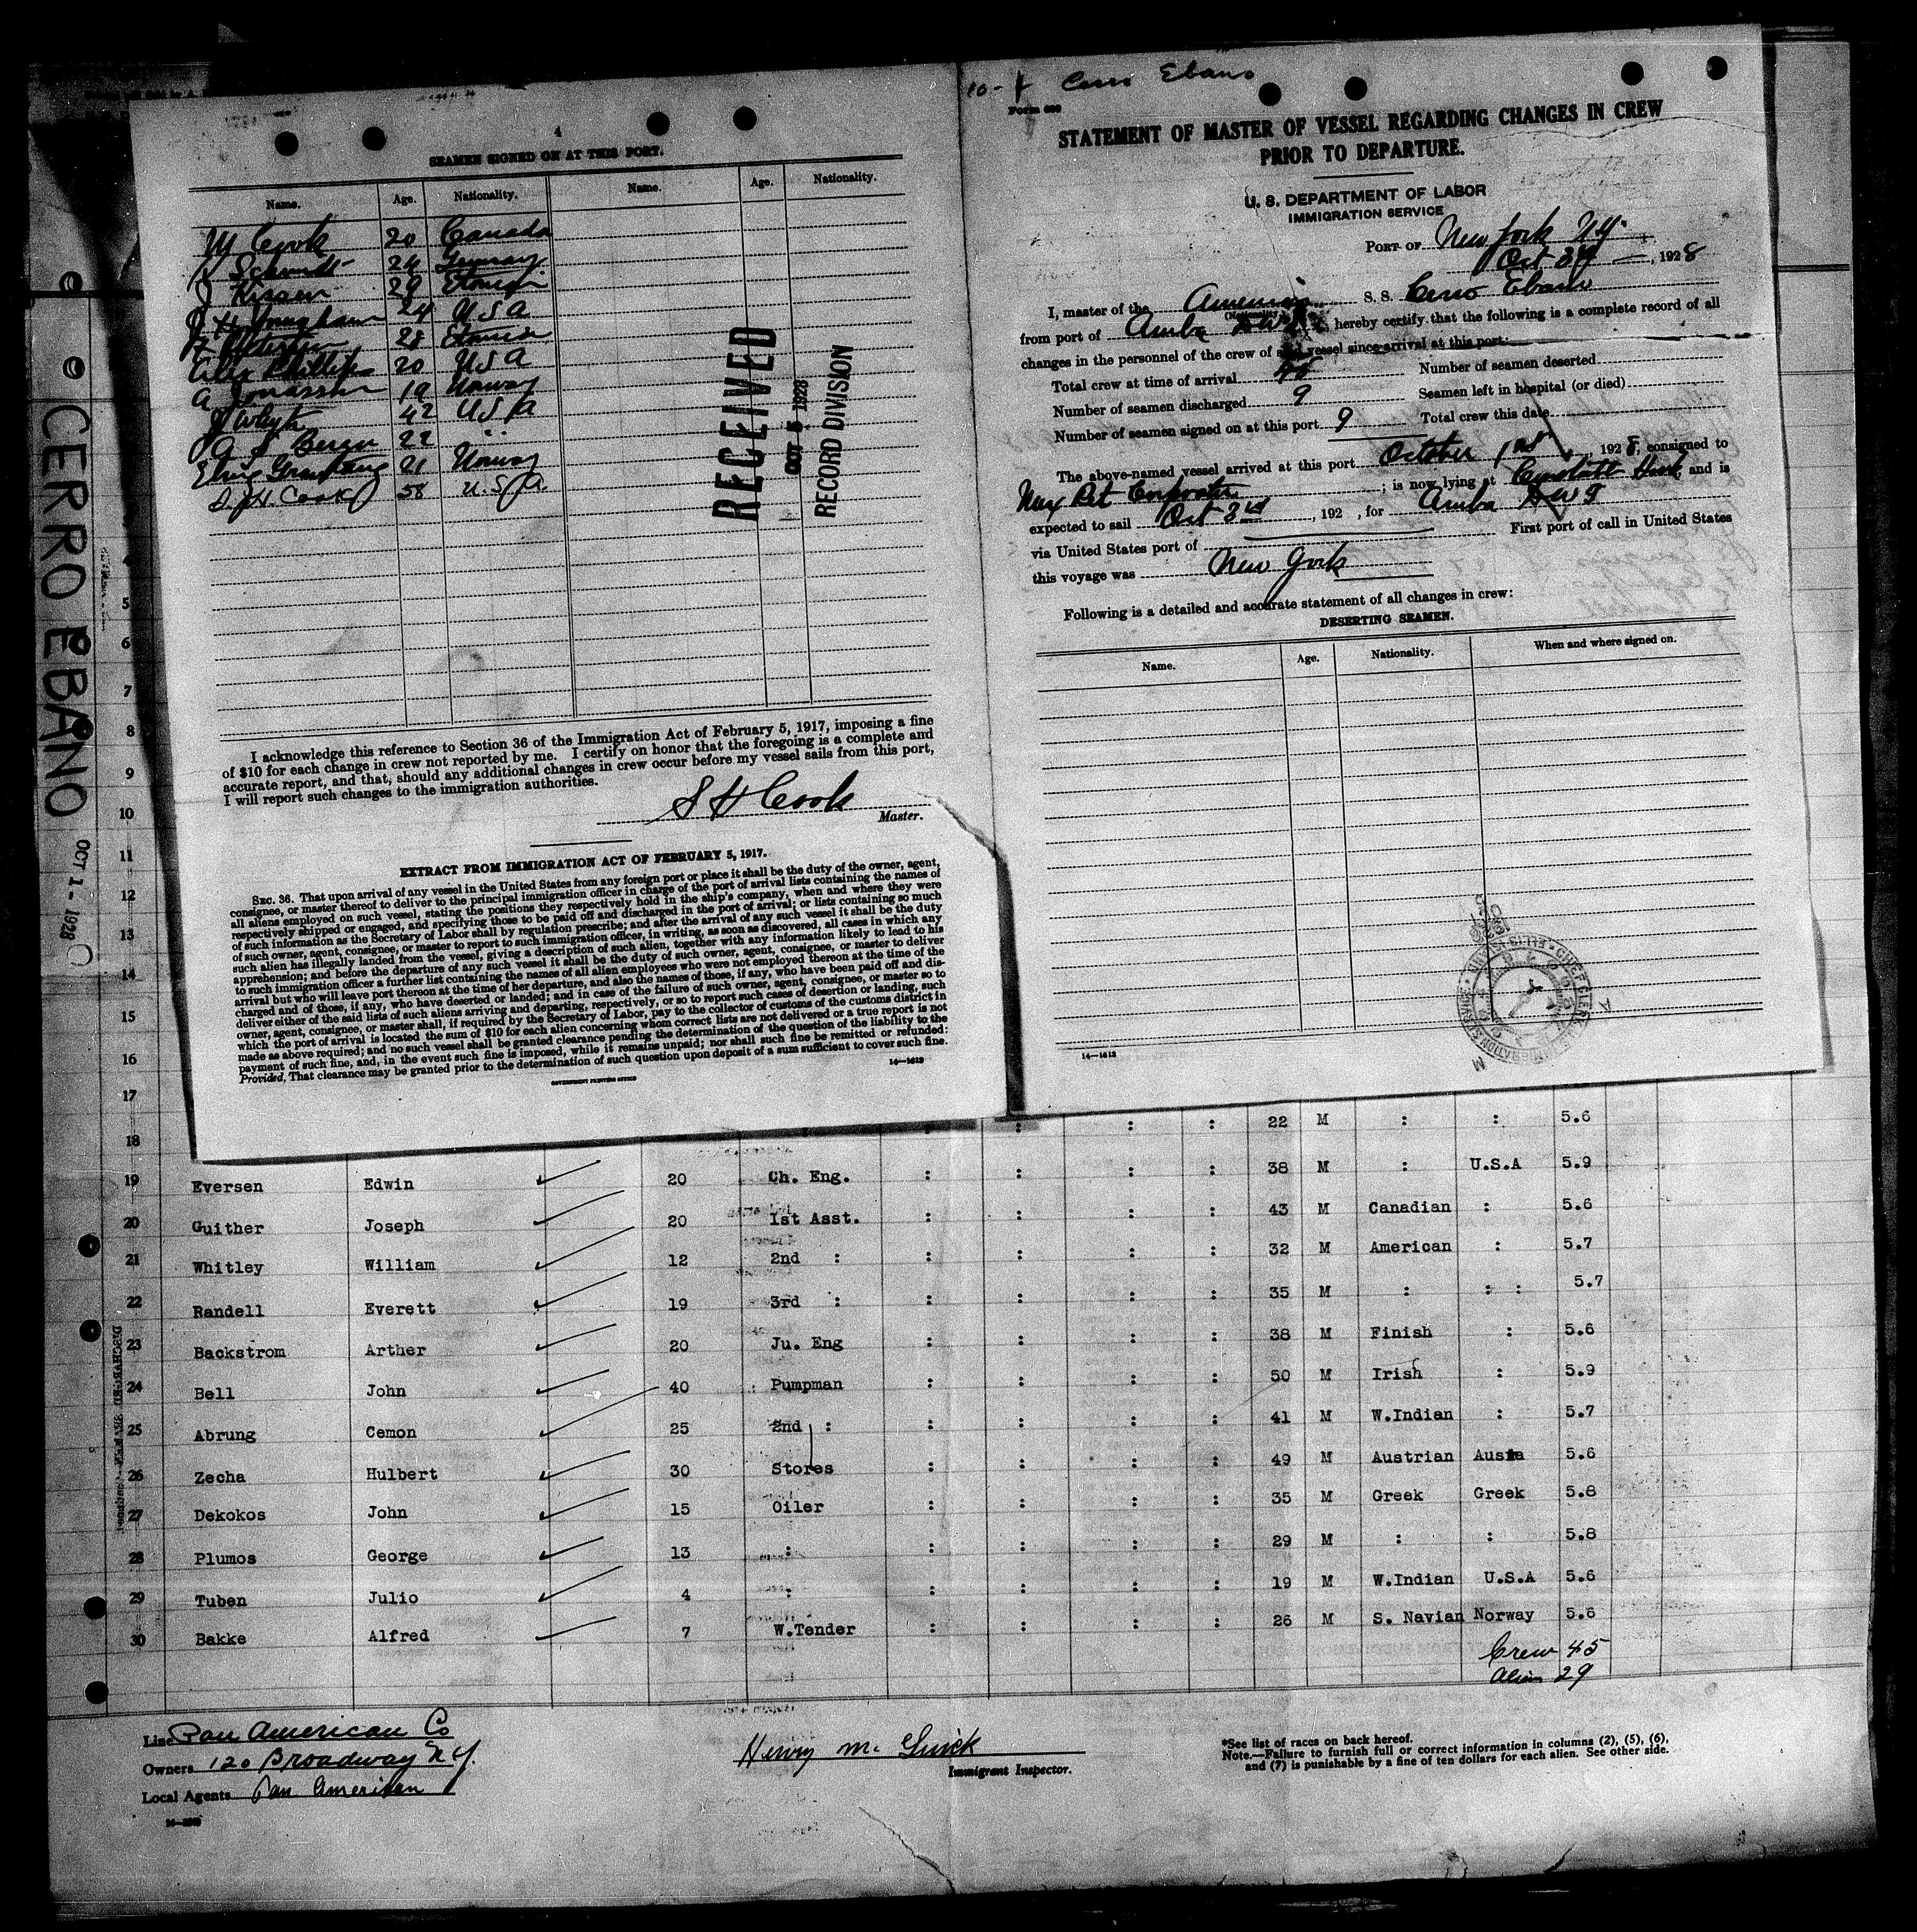 4
SEAMEN SIGNED ON AT THIS PORT.
Name. Age. Nationality. Name. Age. Nationality.
M Cook 20 Canada
Schmidt 24
J 29
24 U S A
28
Alex Phillips 20 U S A
A 19 Norway
J Whyte 42 U S A
22 " "
21 Norway
S. H. Cook 58 U.S.A.
RECEIVED
OCT 5 1928
RECORD DIVISION
I acknowledge this reference to Section 36 of the Immigration Act of February 5, 1917, imposing a fine
of $10 for each change in crew not reported by me. I certify on honor that the foregoing is a complete and
accurate report, and that, should any additional changes in crew occur before my vessel sails from this port,
I will report such changes to the immigration authorities.
S H Cook
Master.
EXTRACT FROM IMMIGRATION ACT OF FEBRUARY 5, 1917.
SEC. 36. That upon arrival of any vessel in the United States from any foreign port or place it shall be the duty of the owner, agent,
consignee, or master thereof to deliver to the principal immigration officer in charge of the port of arrival lists containing the names of
all aliens employed on such vessel, stating the positions they respectively hold in the ship's company, when and where they were
respectively shipped or engaged, and specifying those to be paid off and discharged in the port of arrival; or lists containing so much
of such information as the Secretary of Labor shall by regulation prescribe; and after the arrival of any such vessel it shall be the duty
of such owner, agent, consignee, or master to report to such immigration officer, in writing, as soon as discovered, all cases in which any
such alien has illegally landed from the vessel, giving a description of such alien, together with any information likely to lead to his
apprehension; and before the departure of any such vessel it shall be the duty of such owner, agent, consignee, or master to deliver
to such immigration officer a further list containing the names of all alien employees who were not employed thereon at the time of the
arrival but who will leave port thereon at the time of her departure, and also the names of those, if any, who have been paid off and dis-
charged and of those, if any, who have deserted or landed; and in case of the failure of such owner, agent, consignee, or master so to
deliver either of the said lists of such aliens arriving and departing, respectively, or so to report such cases of desertion or landing, such
owner, agent, consignee, or master shall, if required by the Secretary of Labor, pay to the collector of customs of the customs district in
which the port of arrival is located the sum of $10 for each alien concerning whom correct lists are not delivered or a true report is not
made as above required; and no such vessel shall be granted clearance pending the determination of the question of the liability to the
payment of such fine, and, in the event such fine is imposed, while it remains unpaid; nor shall such fine be remitted or refunded:
Provided, That clearance may be granted prior to the determination of such question upon deposit of a sum sufficient to cover such fine.
14—1613
GOVERNMENT PRINTING OFFICE
10- Cerro Ebano
Form 689
STATEMENT OF MASTER OF VESSEL REGARDING CHANGES IN CREW
PRIOR TO DEPARTURE.
U. S. DEPARTMENT OF LABOR
IMMIGRATION SERVICE
PORT OF New York N.Y.
Oct , 1928
I, master of the American S. S. Cerro Ebano
(Nationality)
from port of Aruba D W I, hereby certify that the following is a complete record of all
changes in the personnel of the crew of said vessel since arrival at this port:
Total crew at time of arrival 45 Number of seamen deserted
Number of seamen discharged 9 Seamen left in hospital (or died)
Number of seamen signed on at this port 9 Total crew this date
The above-named vessel arrived at this port October 1st, 1928, consigned to
Mex Pet Corporation; is now lying at and is
expected to sail Oct , 192 , for Aruba D W I
via United States port of First port of call in United States
this voyage was New York
Following is a detailed and accurate statement of all changes in crew:
DESERTING SEAMEN.
Name. Age. Nationality. When and where signed on.
14—1613
CERRO EBANO OCT 1 - 1928
4
5
6
7
8
9
10
11
12
13
14
15
16
17
18 : : : : : 22 M : : 5.6
19 Eversen Edwin 20 Ch. Eng. : : : : 38 M : U.S.A 5.9
20 Guither Joseph 20 1st Asst. : : : : 43 M Canadian : 5.6
21 Whitley William 12 2nd : : : : : 32 M American : 5.7
22 Randell Everett 19 3rd : : : : : 35 M : : : 5.7
23 Backstrom Arther 20 Ju. Eng : : : : 38 M Finish : 5.6
24 Bell John 40 Pumpman : : : : 50 M Irish : 5.9
25 Abrung Cemon 25 2nd : : : : : 41 M W.Indian : 5.7
26 Zecha Hulbert 30 Stores : : : : 49 M Austrian Austa 5.6
27 Dekokos John 15 Oiler : : : : 35 M Greek Greek 5.8
28 Plumos George 13 : : : : : 29 M : : 5.8
29 Tuben Julio 4 : : : : : 19 M W.Indian U.S.A 5.6
30 Bakke Alfred 7 W.Tender : : : : 26 M S. Navian Norway 5.6
Crew 45
Alien 29
Line Pan American Co
Owners 120 Broadway N Y.
Local Agents Pan American
Henry
Immigrant Inspector.
*See list of races on back hereof.
Note.—Failure to furnish full or correct information in columns (2), (5), (6),
and (7) is punishable by a fine of ten dollars for each alien. See other side.